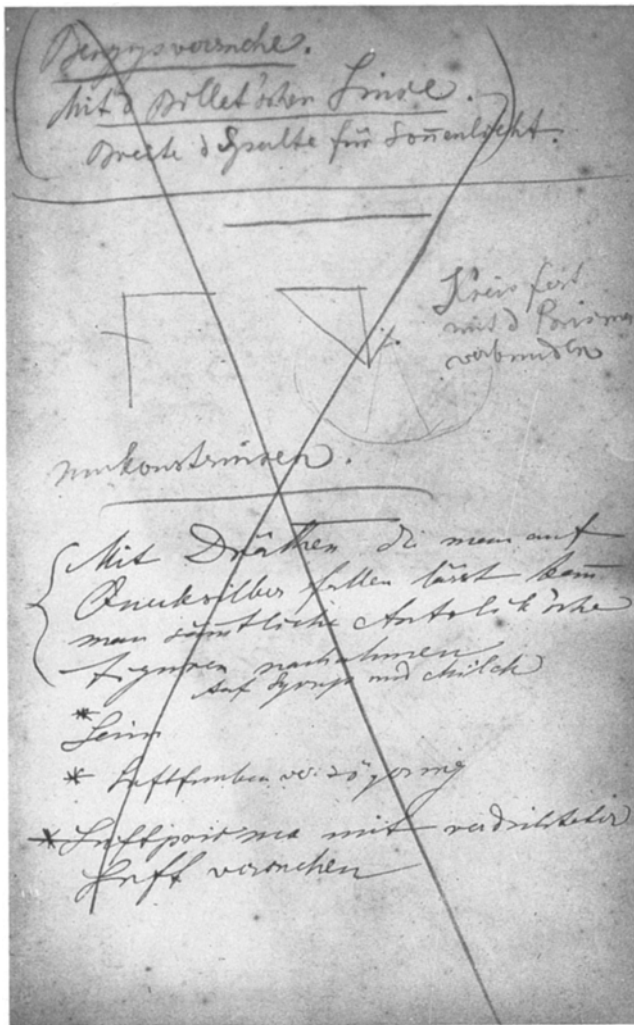 Beugungsversuche.
Mit d Billet'schen Linse.
Breite d Spalte für Sonnenlicht.
Kreis fest
mit d Prisma
verbunden
umkonstruiren.
Mit Dräthen die man auf
Quecksilber fallen lässt kann
man sämtliche Antolik'sche
Figuren nachahmen
Auf Syrup und Milch
* Leim
* Luftfunkenverzögerung
* Luftprisma mit verdichteter
Luft versuchen